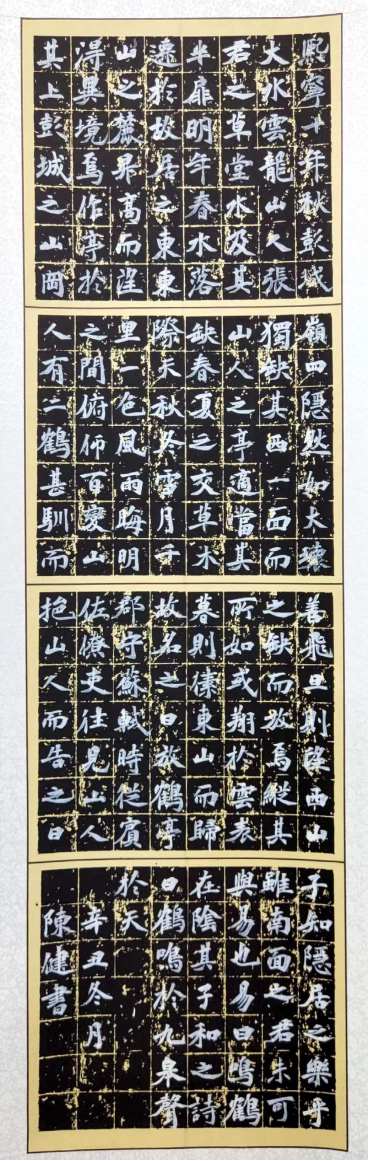 熙寧十年秋彭城
大水雲龍山人張
君之草堂水及其
半扉明年春水落
遷於故居之東東
山之麓昇高而望
得異境焉作亭於
其上彭城之山岡
嶺四隱然如大環
獨缺其西一面而
山人之亭適當其
缺春夏之交草木
際天秋冬雪月千
里一色風雨晦明
之間俯仰百變山
人有二鶴甚馴而
善飛旦則望西山
之缺而放焉縱其
所如或翔於雲表
暮則傃東山而歸
故名之曰放鶴亭
郡守蘇軾時從賓
佐僚吏往見山人
挹山人而告之曰
子知隱居之樂乎
雖南面之君未可
與易也易曰鳴鶴
在陰其子和之詩
曰鶴鳴於九皋聲
於天
辛丑冬月
陳健書